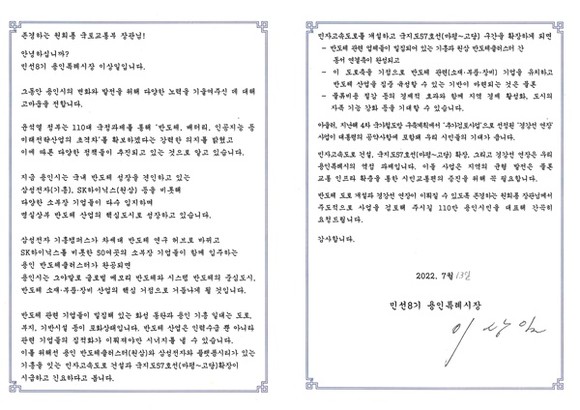 존경하는 원희룡 국토교통부 장관님!
안녕하십니까?
민선8기 용인특례시장 이상일입니다.
그동안 용인시의 변화와 발전을 위해 다양한 노력을 기울여주신 데 대해
고마움을 전합니다.
윤석열 정부는 110대 국정과제를 통해 '반도체, 배터리, 인공지능 등
미래전략산업의 초격차'를 확보하겠다는 강력한 의지를 밝혔고
이에 따른 다양한 정책들이 추진되고 있는 것으로 알고 있습니다.
지금 용인시는 국내 반도체 성장을 견인하고 있는
삼성전자(기흥), SK하이닉스(원삼) 등을 비롯해
다양한 소부장 기업들이 다수 입지하며
명실상부 반도체 산업의 핵심도시로 성장하고 있습니다.
삼성전자 기흥캠퍼스가 차세대 반도체 연구 허브로 바뀌고
SK하이닉스를 비롯한 50여곳의 소부장 기업들이 함께 입주하는
용인 반도체클러스터가 완공되면
용인시는 그야말로 글로벌 메모리 반도체와 시스템 반도체의 중심도시,
반도체 소재·부품·장비 산업의 핵심 거점으로 거듭나게 될 것입니다.
반도체 관련 기업들이 밀집해 있는 화성 동탄과 용인 기흥 일대는 도로,
부지, 기반시설 등이 포화상태입니다. 반도체 산업은 인력수급 뿐 아니라
관련 기업들의 집적화가 이뤄져야만 시너지를 낼 수 있습니다.
이를 위해선 용인 반도체클러스터(원삼)와 삼성전자와 플랫폼시티가 있는
기흥을 잇는 민자고속도로 건설과 국지도57호선(마평~고당)확장이
시급하고 긴요하다고 봅니다.
민자고속도로를 개설하고 국지도57호선(마평~고당) 구간을 확장하게 되면
- 반도체 관련 업체들이 밀집되어 있는 기흥과 원삼 반도체클러스터 간
동서 연결축이 완성되고
- 이 도로축을 거점으로 반도체 관련(소재·부품·장비) 기업을 유치하고
반도체 산업을 집중 육성할 수 있는 기반이 마련되는 것은 물론
- 물류비용 절감 등의 경제적 효과와 함께 지역 경제 활성화, 도시의
자족 기능 강화 등을 기대할 수 있습니다.
아울러, 지난해 4차 국가철도망 구축계획에서 '추가검토사업'으로 선정된 '경강선 연장'
사업이 대통령의 공약사항에 포함돼 우리 시민들의 기대가 큽니다.
민자고속도로 건설, 국지도57호선(마평~고당) 확장, 그리고 경강선 연장은 우리
용인특례시의 역점 과제입니다. 이들 사업은 지역의 균형 발전은 물론
교통 인프라 확충을 통한 시민교통편의 증진을 위해 꼭 필요합니다.
반도체 도로 개설과 경강선 연장이 이뤄질 수 있도록 존경하는 원희룡 장관님께서
주도적으로 사업을 검토해 주시길 110만 용인시민을 대표해 간곡히
요청드립니다.
감사합니다.
2022. 7월 13일
민선8기 용인특례시장
이상일